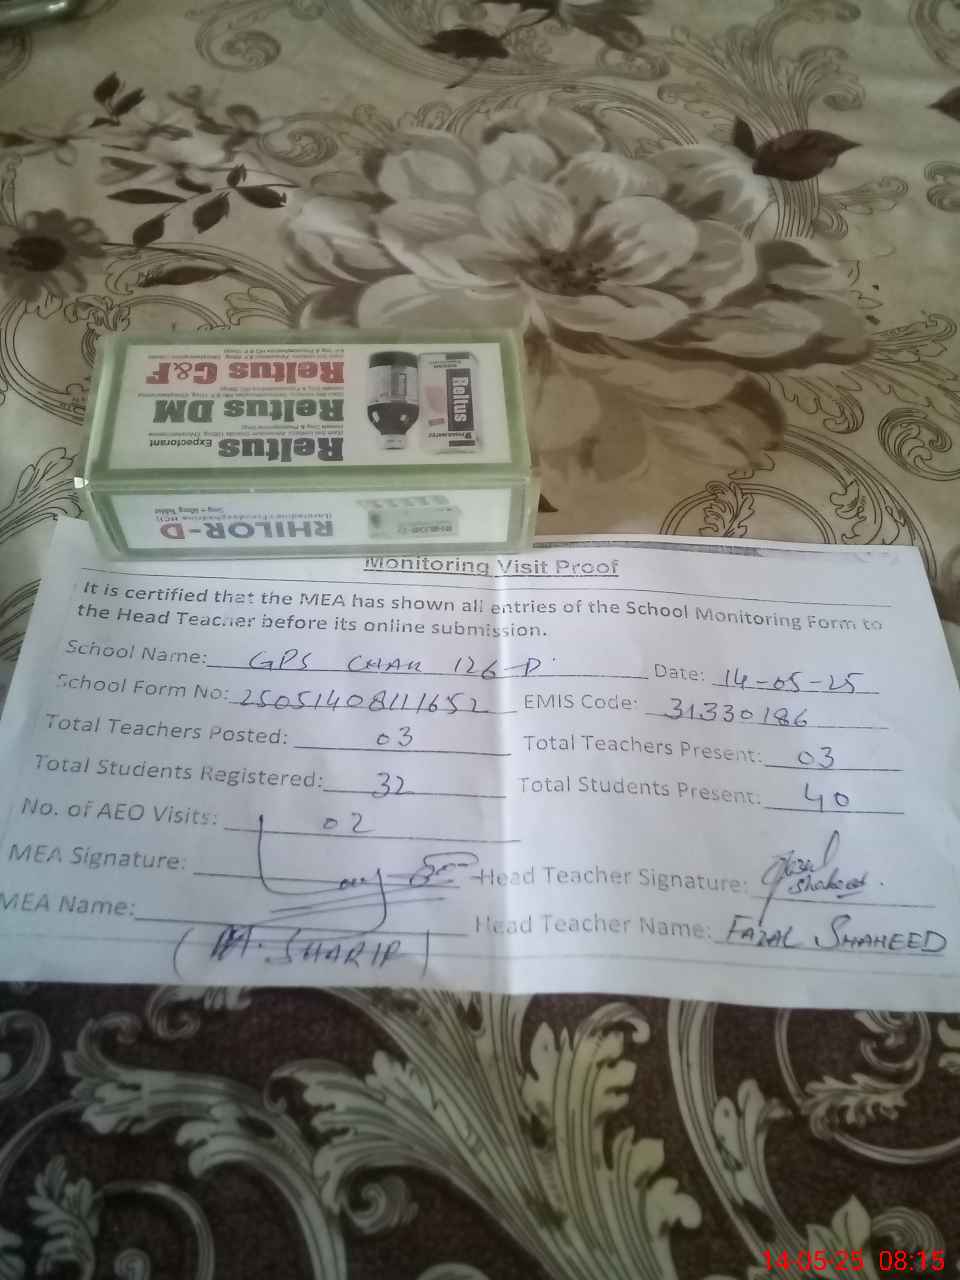 Reltus C&F
Reltus DM
Reltus Expectorant
Reltus
RHILOR-D
(Loratadine + Pseudoephedrine HCl)
5mg + 60mg Tablet
RHILOR-D
Monitoring Visit Proof
It is certified that the MEA has shown all entries of the School Monitoring Form to
the Head Teacher before its online submission.
School Name: GPS CHAK 126-P Date: 14-05-25
School Form No: 25051408111652 EMIS Code: 31330186
Total Teachers Posted: 03 Total Teachers Present: 03
Total Students Registered: 32 Total Students Present: 40
No. of AEO Visits: 02
MEA Signature: Head Teacher Signature: Fazal Shaheed
MEA Name: Head Teacher Name: FAZAL SHAHEED
(M. SHARIF)
14-05-25 08:15